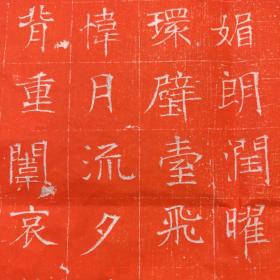 媚朗潤曜
環璧臺飛
幃月流夕
背重闈哀